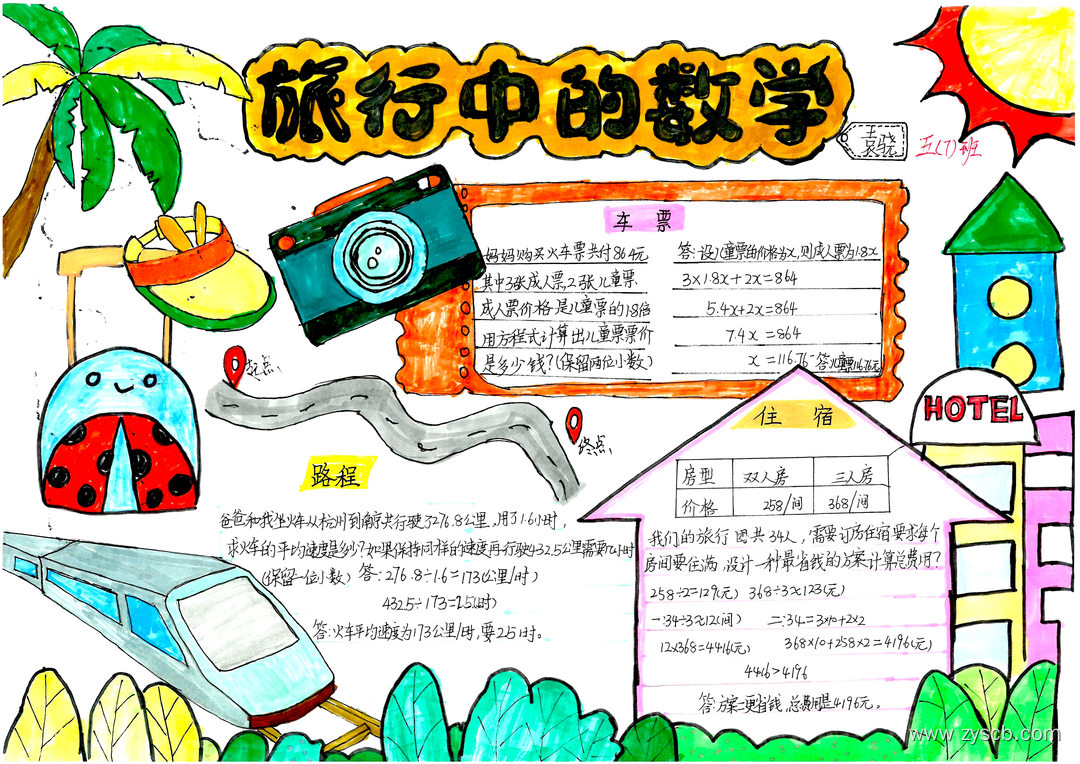 旅行中的数学
袁骁
五(7)班
车票
妈妈购买火车票共付864元
其中3张成人票2张儿童票
成人票价格是儿童票的1.8倍
用方程式计算出儿童票票价
是多少钱?(保留两位小数)
答:设儿童票的价格为x,则成人票为1.8x
3×1.8x+2x=864
5.4x+2x=864
7.4x=864
x=116.76
答儿童票116.76元
起点
终点
路程
爸爸和我坐火车从杭州到南京共行驶了276.8公里,用了1.6小时,
求火车的平均速度是多少?如果保持同样的速度再行驶432.5公里需要几小时
(保留一位小数) 答:276.8÷1.6=173(公里/时)
432.5÷173=2.5(时)
答:火车平均速度为173公里/时,要2.5小时。
HOTEL
住宿
房型 双人房 三人房
价格 258/间 368/间
我们的旅行团共34人,需要订房住宿要求每个
房间要住满,设计一种最省钱的方案计算总费用?
258÷2=129(元) 368÷3≈123(元)
一:34÷3≈12(间) 二:34=3×10+2×2
12×368=4416(元) 368×10+258×2=4196(元)
4416>4196
答:方案二更省钱,总费用是4196元。
www.zyscb.com